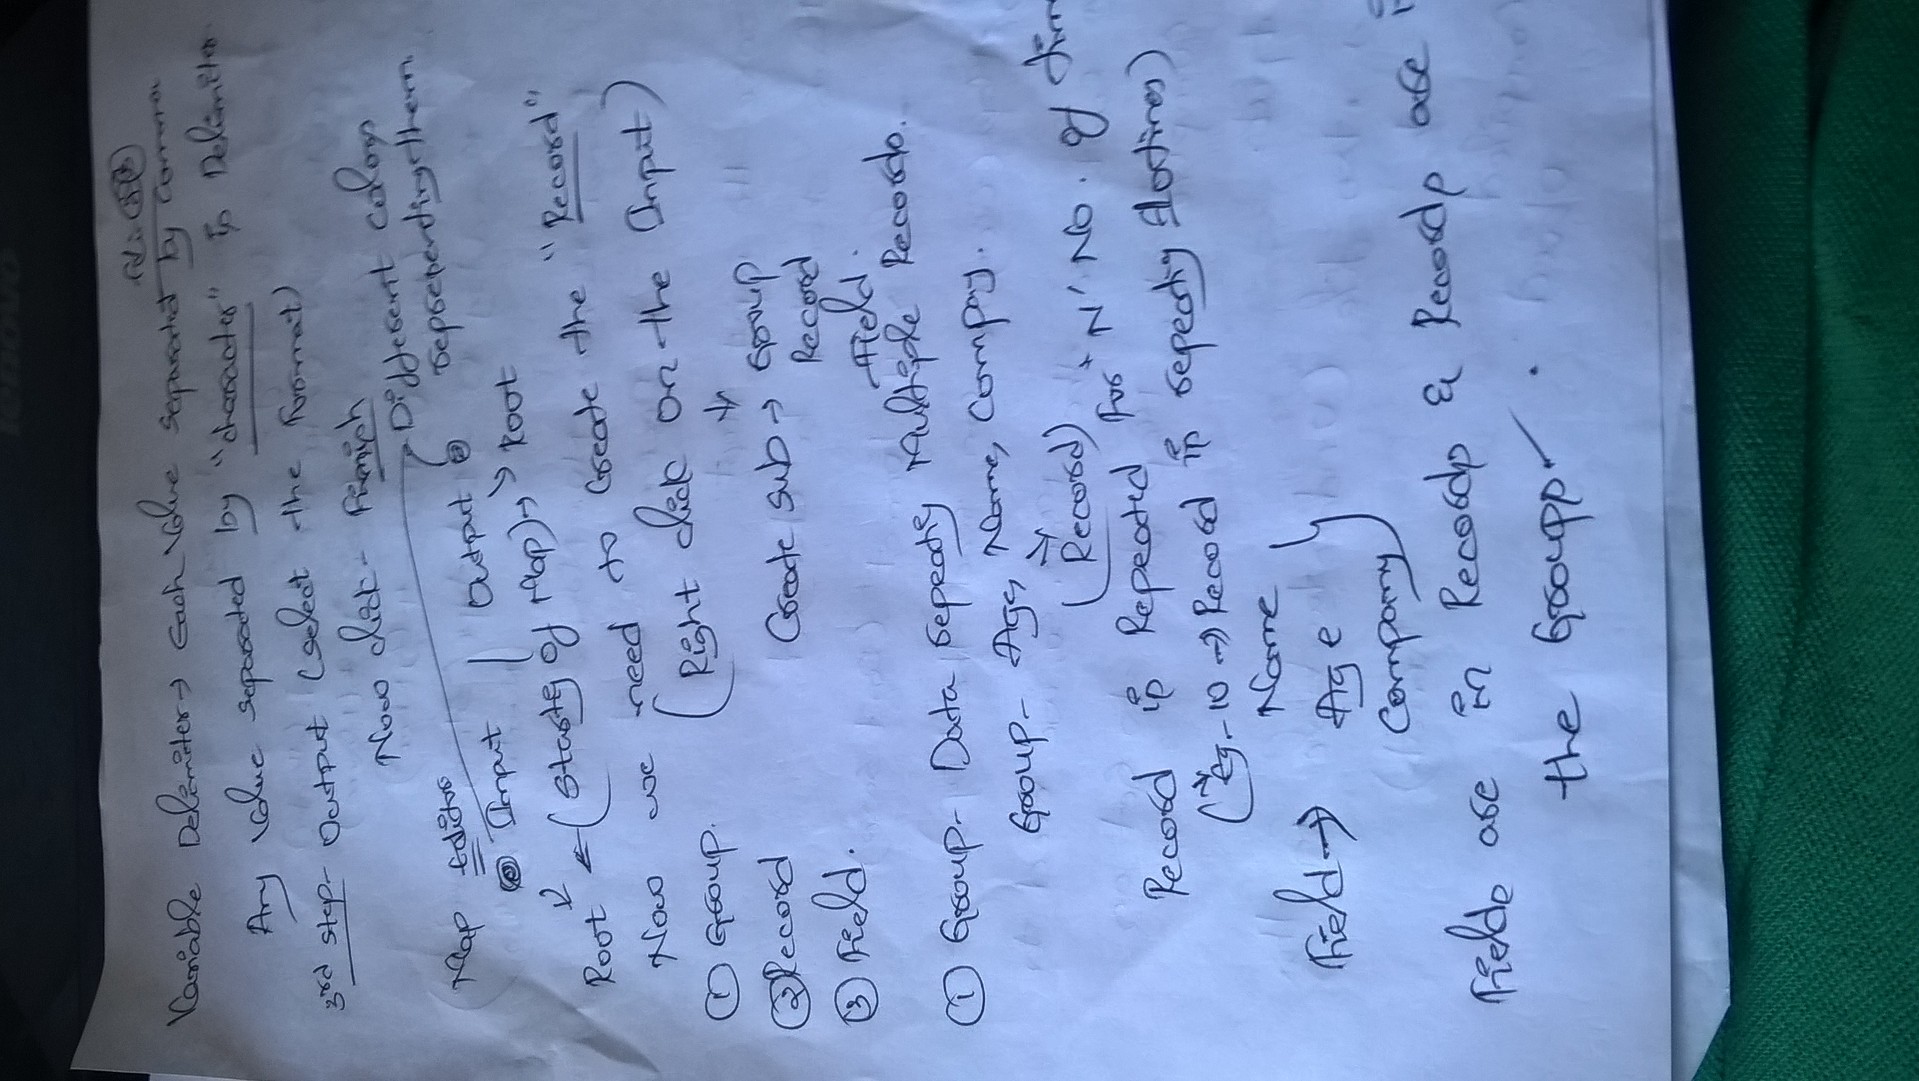 Variable Delimiter → Each Value separated by Comma
Any Value separated by "character" is Delimiter
3rd step - Output (select the format)
Now click - Finish
Different colors
representing them
Map Editor
Input | Output
Root ← (Starting of Map) → Root
Now we need to create the "Record"
(Right click on the Input)
① Group.
② Record
③ Field.
Create sub → Group
Record
Field.
① Group - Data repeating Multiple Records.
Group - Age, Name, Company.
(Record)
Record is Repeated for 'N' No. of
(Eg - 10 → Record is repeating 10times)
Field → Name
Age
Company
Fields are in Records & Records are
the Groups.